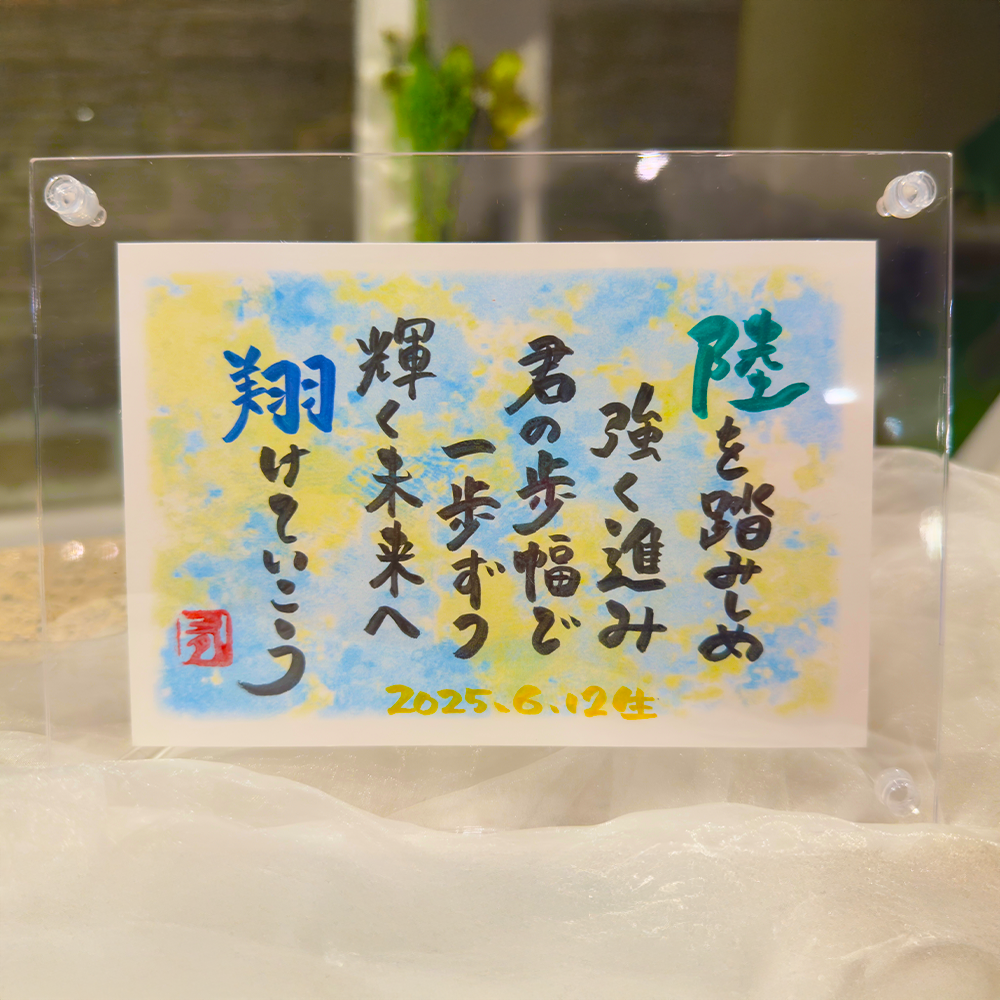 陸を踏みしめ
強く進み
君の歩幅で
一歩ずつ
輝く未来へ
翔けていこう
2025.6.12生